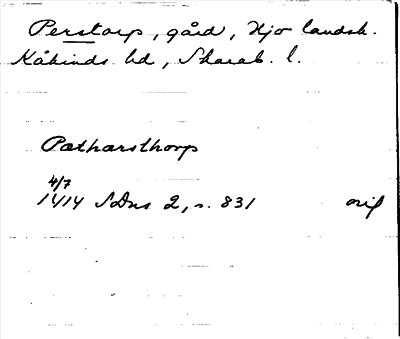 Perstorp, gård, Hjo landsk.
Kåkinds hd, Skarab. l.
Pætharsthorp
4/7
1414 SDns 2, s. 831 orig